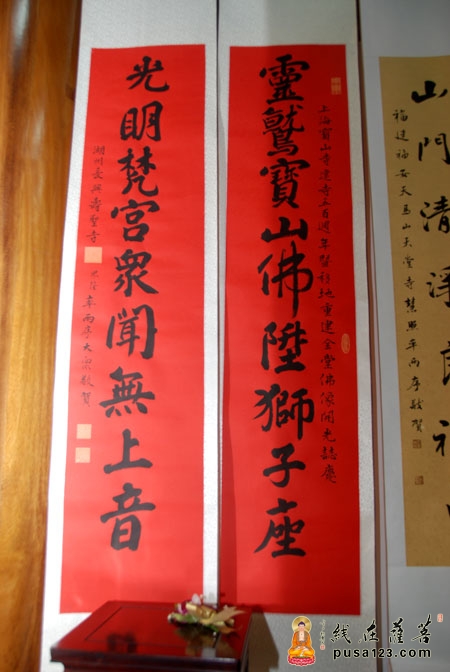 山門清淨
福建福安天馬山天堂寺慧照率兩序敬賀
靈鷲寶山佛陞獅子座
上海寶山寺建寺五百週年暨移地重建金堂佛像開光誌慶
光明梵宮衆聞無上音
湖州長興壽聖寺
率兩序大衆敬賀
线在薩菩
pusa123.com